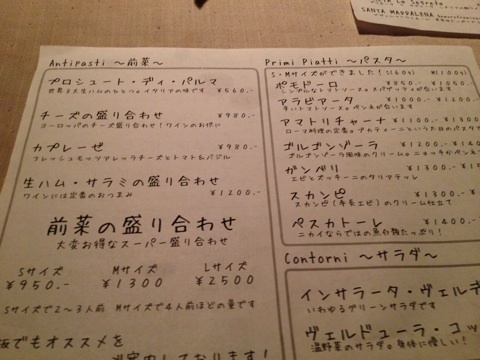 SANTA MADDALENA
Antipasti ～前菜～
プロシュート・ディ・パルマ
世界3大生ハムのひとつ。イタリアの味です ¥860.-
チーズの盛り合わせ ¥980.-
ヨーロッパのチーズ盛り合わせ!ワインのお供に
カプレーゼ ¥980.-
フレッシュモッツァレッラチーズとトマト&バジル
生ハム・サラミの盛り合わせ
ワインには定番のおつまみ ¥1200.-
前菜の盛り合わせ
大変お得なスーパー盛り合わせ
Sサイズ Mサイズ Lサイズ
¥950.- ¥1300 ¥2500
Sサイズで2～3人前 Mサイズで4人前ほどの量です
でもオススメを
Primi Piatti ～パスタ～
S・Mサイズができました!
ポモドーロ
シンプルなトマトソース
アラビアータ ¥1000.-
アマトリチャーナ ¥1100.-
ローマ料理の定番
ゴルゴンゾーラ
ゴルゴンゾーラ風味のクリーム
ガンベリ ¥1300.-
エビとズッキーニの
スカンピ ¥1300.-
スカンピ(手長エビ)のクリーム仕立て
ペスカトーレ ¥1400.-
ニカイならではの魚介類たっぷり!
Contorni ～サラダ～
インサラータ・ヴェルデ
いわゆるグリーンサラダです
ヴェルドゥーラ・コッ
温野菜のサラダ。身体に優しい!